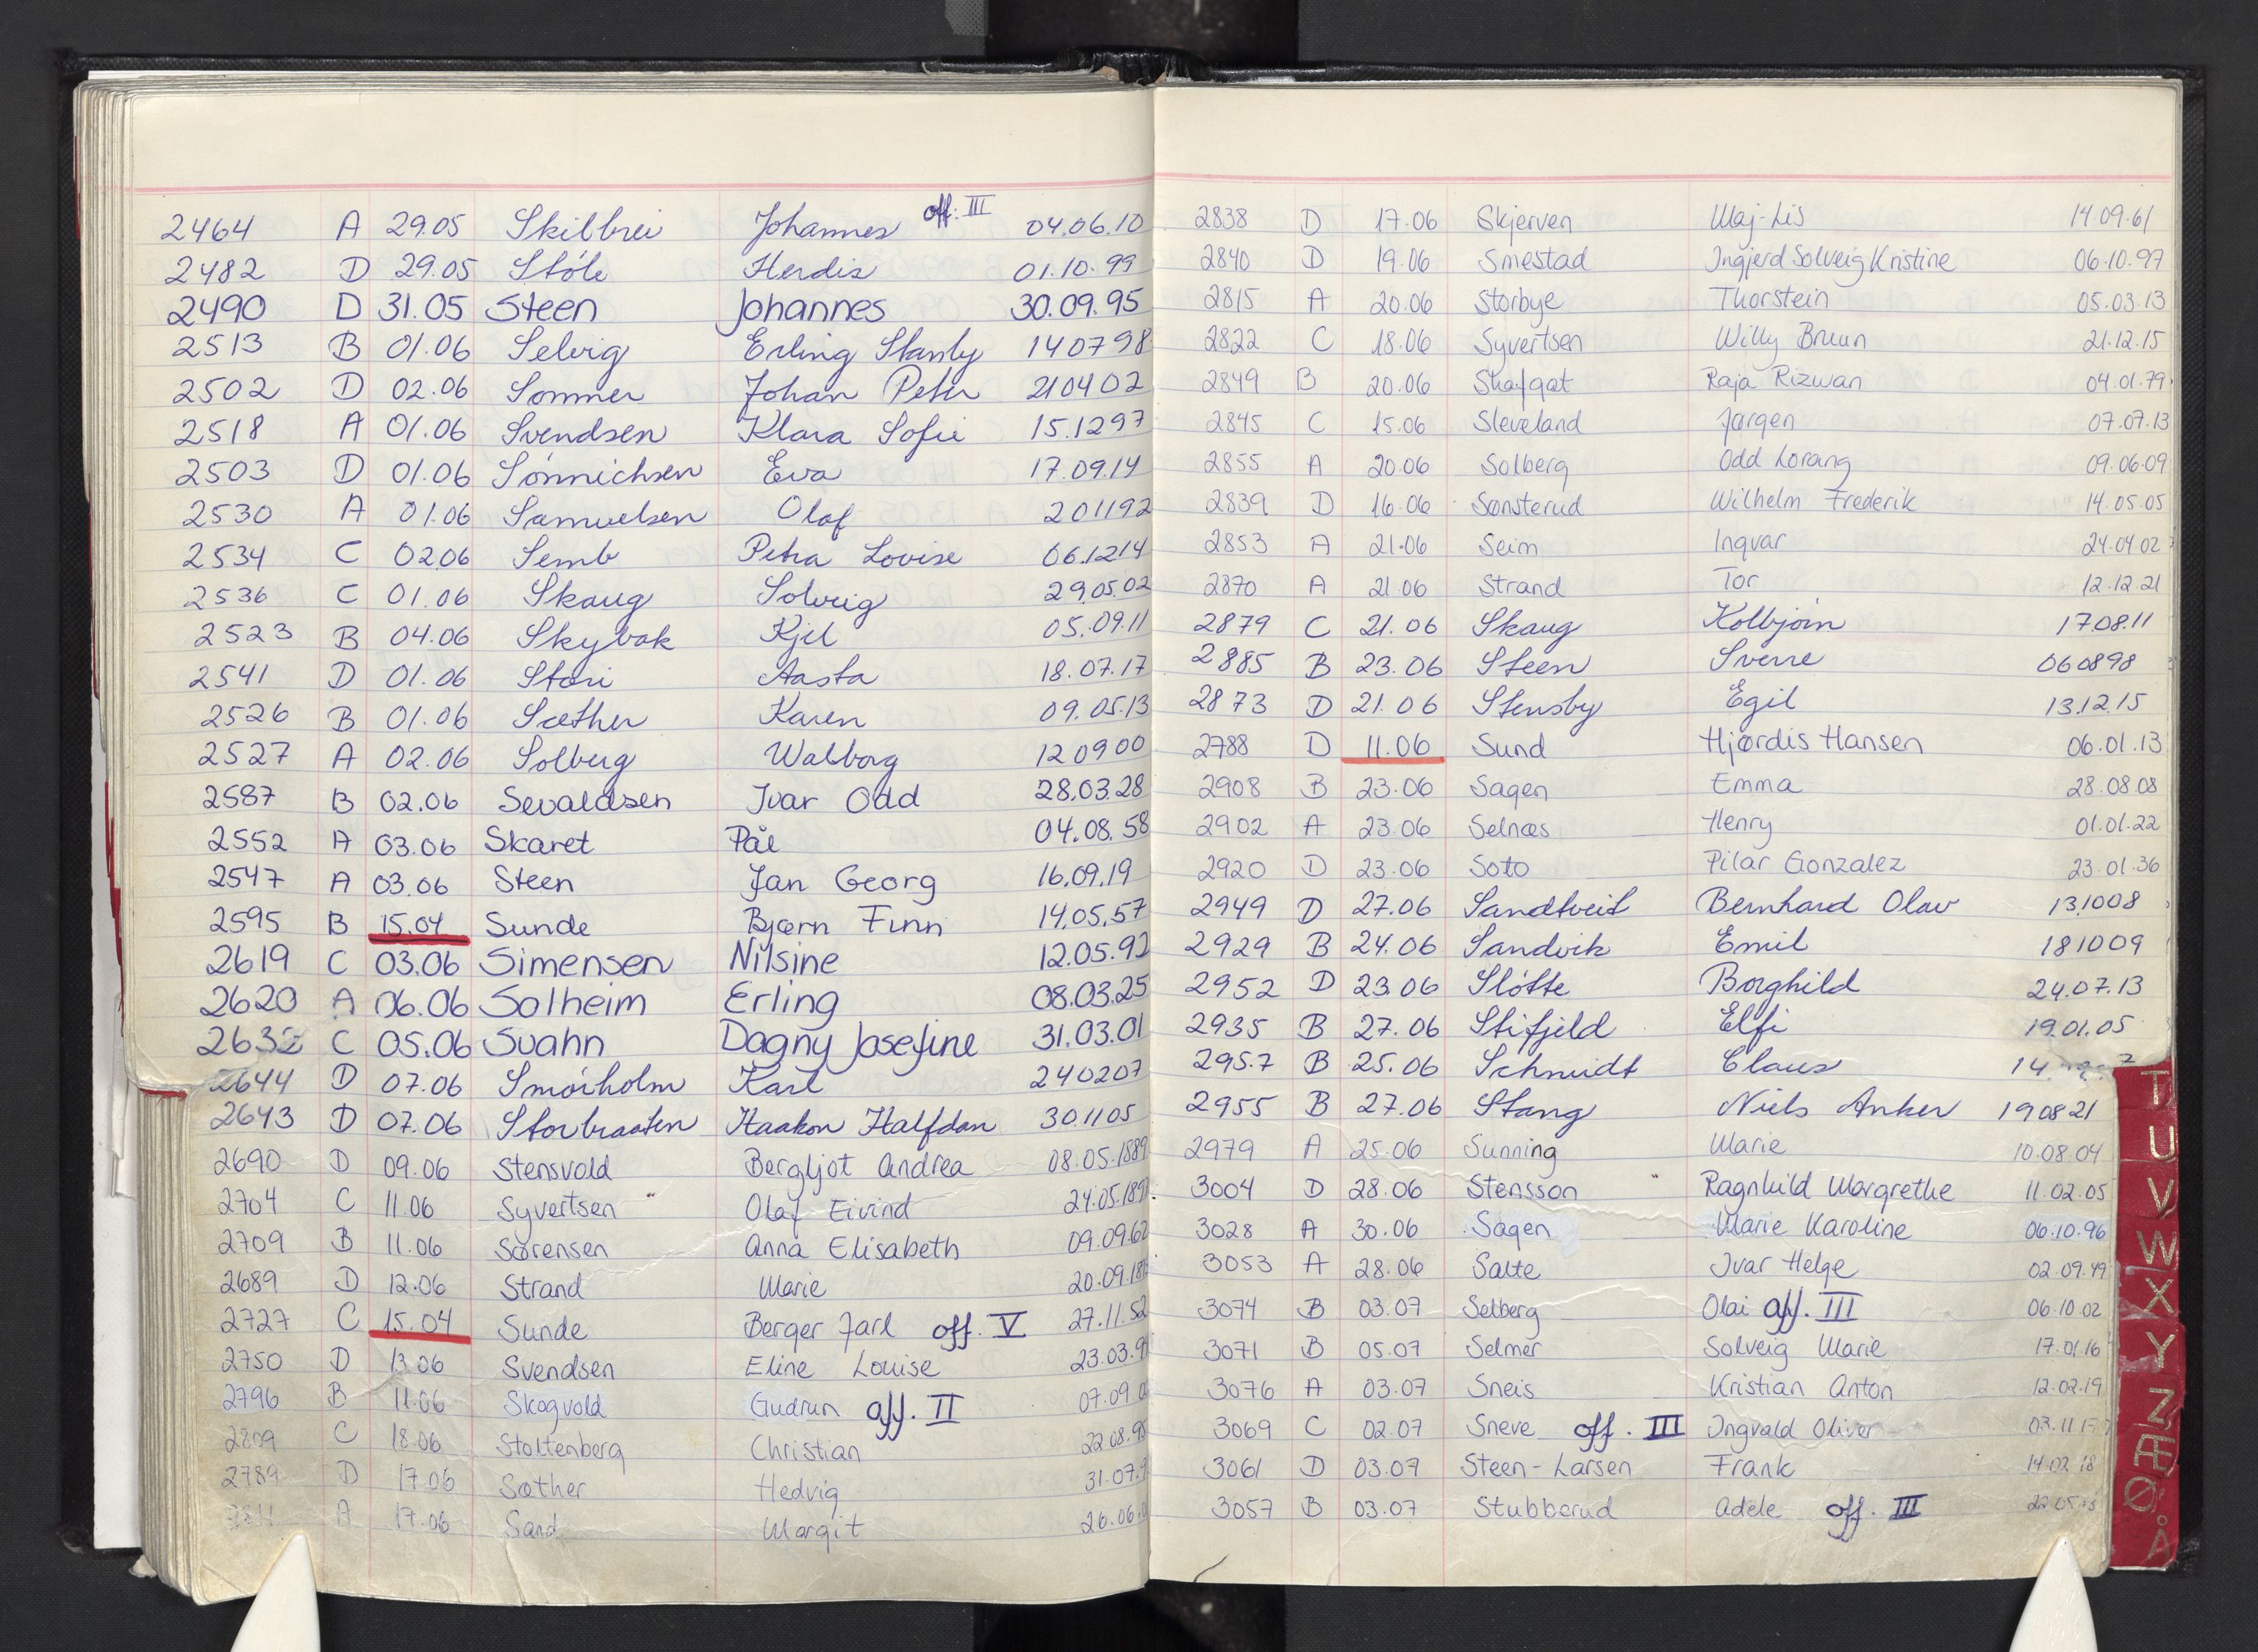 2464 A 29.05 Skilbrei Johannes off. III 04.06.10
2482 D 29.05 Støle Herdis 01.10.99
2490 D 31.05 Steen Johannes 30.09.95
2513 B 01.06 Selvig Erling Stanly 140798
2502 D 02.06 Sommer Johan Peter 210402
2518 A 01.06 Svendsen Klara Sofie 15.1297
2503 D 01.06 Sönnichsen Eva 17.09.14
2530 A 01.06 Samuelsen Olaf 201192
2534 C 02.06 Semb Petra Lovise 06.1214
2536 C 01.06 Skaug Solveig 29.05.02
2523 B 04.06 Skybak Kjel 05.09.11
2541 D 01.06 Støri Aasta 18.07.17
2526 B 01.06 Sæther Karen 09.05.13
2527 A 02.06 Solberg Walborg 120900
2587 B 02.06 Sevaldsen Ivar Odd 28.03.28
2552 A 03.06 Skaret Pål 04.08.58
2547 A 03.06 Steen Jan Georg 16.09.19
2595 B 15.04 Sunde Bjørn Finn 14.05.57
2619 C 03.06 Simensen Nilsine 12.05.92
2620 A 06.06 Solheim Erling 08.03.25
2632 C 05.06 Svahn Dagny Josefine 31.03.01
2644 D 07.06 Smørholm Karl 240207
2643 D 07.06 Storbraaten Haakon Halfdan 301105
2690 D 09.06 Stensvold Bergljot Andrea 08.05.1889
2704 C 11.06 Syvertsen Olaf Eivind
2709 B 11.06 Sørensen Anna Elisabeth 09.09.62
2689 D 12.06 Strand Marie
2727 C 15.04 Sunde Berger Jarl off. V 27.11.52
2750 D 13.06 Svendsen Eline Louise
2796 B 11.06 Skogvold Gudrun off. II
2809 C 18.06 Stoltenberg Christian 22.08.98
2789 D 17.06 Sæther Hedvig
A 17.06 Sand Margit
2838 D 17.06 Skjerven Maj-Lis 14.09.61
2840 D 19.06 Smestad Ingjerd Solveig Kristine 06.10.97
2815 A 20.06 Storbye Thorstein 05.03.13
2822 C 18.06 Syvertsen Willy Bruun 21.12.15
2849 B 20.06 Shafqat Raja Rizwan 04.01.79
2845 C 15.06 Sleveland Jørgen 07.07.13
2855 A 20.06 Solberg Odd Lorang 09.06.09
2839 D 16.06 Sønsterud Wilhelm Frederik 14.05.05
2853 A 21.06 Seim Ingvar 24.04.02
2870 A 21.06 Strand Tor 12.12.21
2879 C 21.06 Skaug Kolbjørn 17.08.11
2885 B 23.06 Steen Sverre 060898
2873 D 21.06 Stensby Egil 13.12.15
2788 D 11.06 Sund Hjørdis Hansen 06.01.13
2908 B 23.06 Sagen Emma 28.08.08
2902 A 23.06 Selnæs Henry 01.01.22
2920 D 23.06 Soto Pilar Gonzalez 23.01.36
2949 D 27.06 Sandtveit Bernhard Olav 13.1008
2929 B 24.06 Sandvik Emil 181009
2952 D 23.06 Sløtte Borghild 24.07.13
2935 B 27.06 Stifjeld Elfi 19.01.05
2957 B 25.06 Schmidt Claus 14
2955 B 27.06 Stang Niels Anker 190821
2979 A 25.06 Sunning Marie 10.08.04
3004 D 28.06 Stensson Ragnhild Margrethe 11.02.05
3028 A 30.06 Sagen Marie Karoline 06.10.96
3053 A 28.06 Salte Ivar Helge 02.09.49
3074 B 03.07 Selberg Olai off. III 06.10.02
3071 B 05.07 Selmer Solveig Marie 17.01.16
3076 A 03.07 Sneis Kristian Anton 12.02.19
3069 C 02.07 Sneve off. III Ingvald Oliver
3061 D 03.07 Steen-Larsen Frank 14.02.18
3057 B 03.07 Stubberud Adele off. III
T
U
V
W
X
Y
Z
Æ
Ø
Å